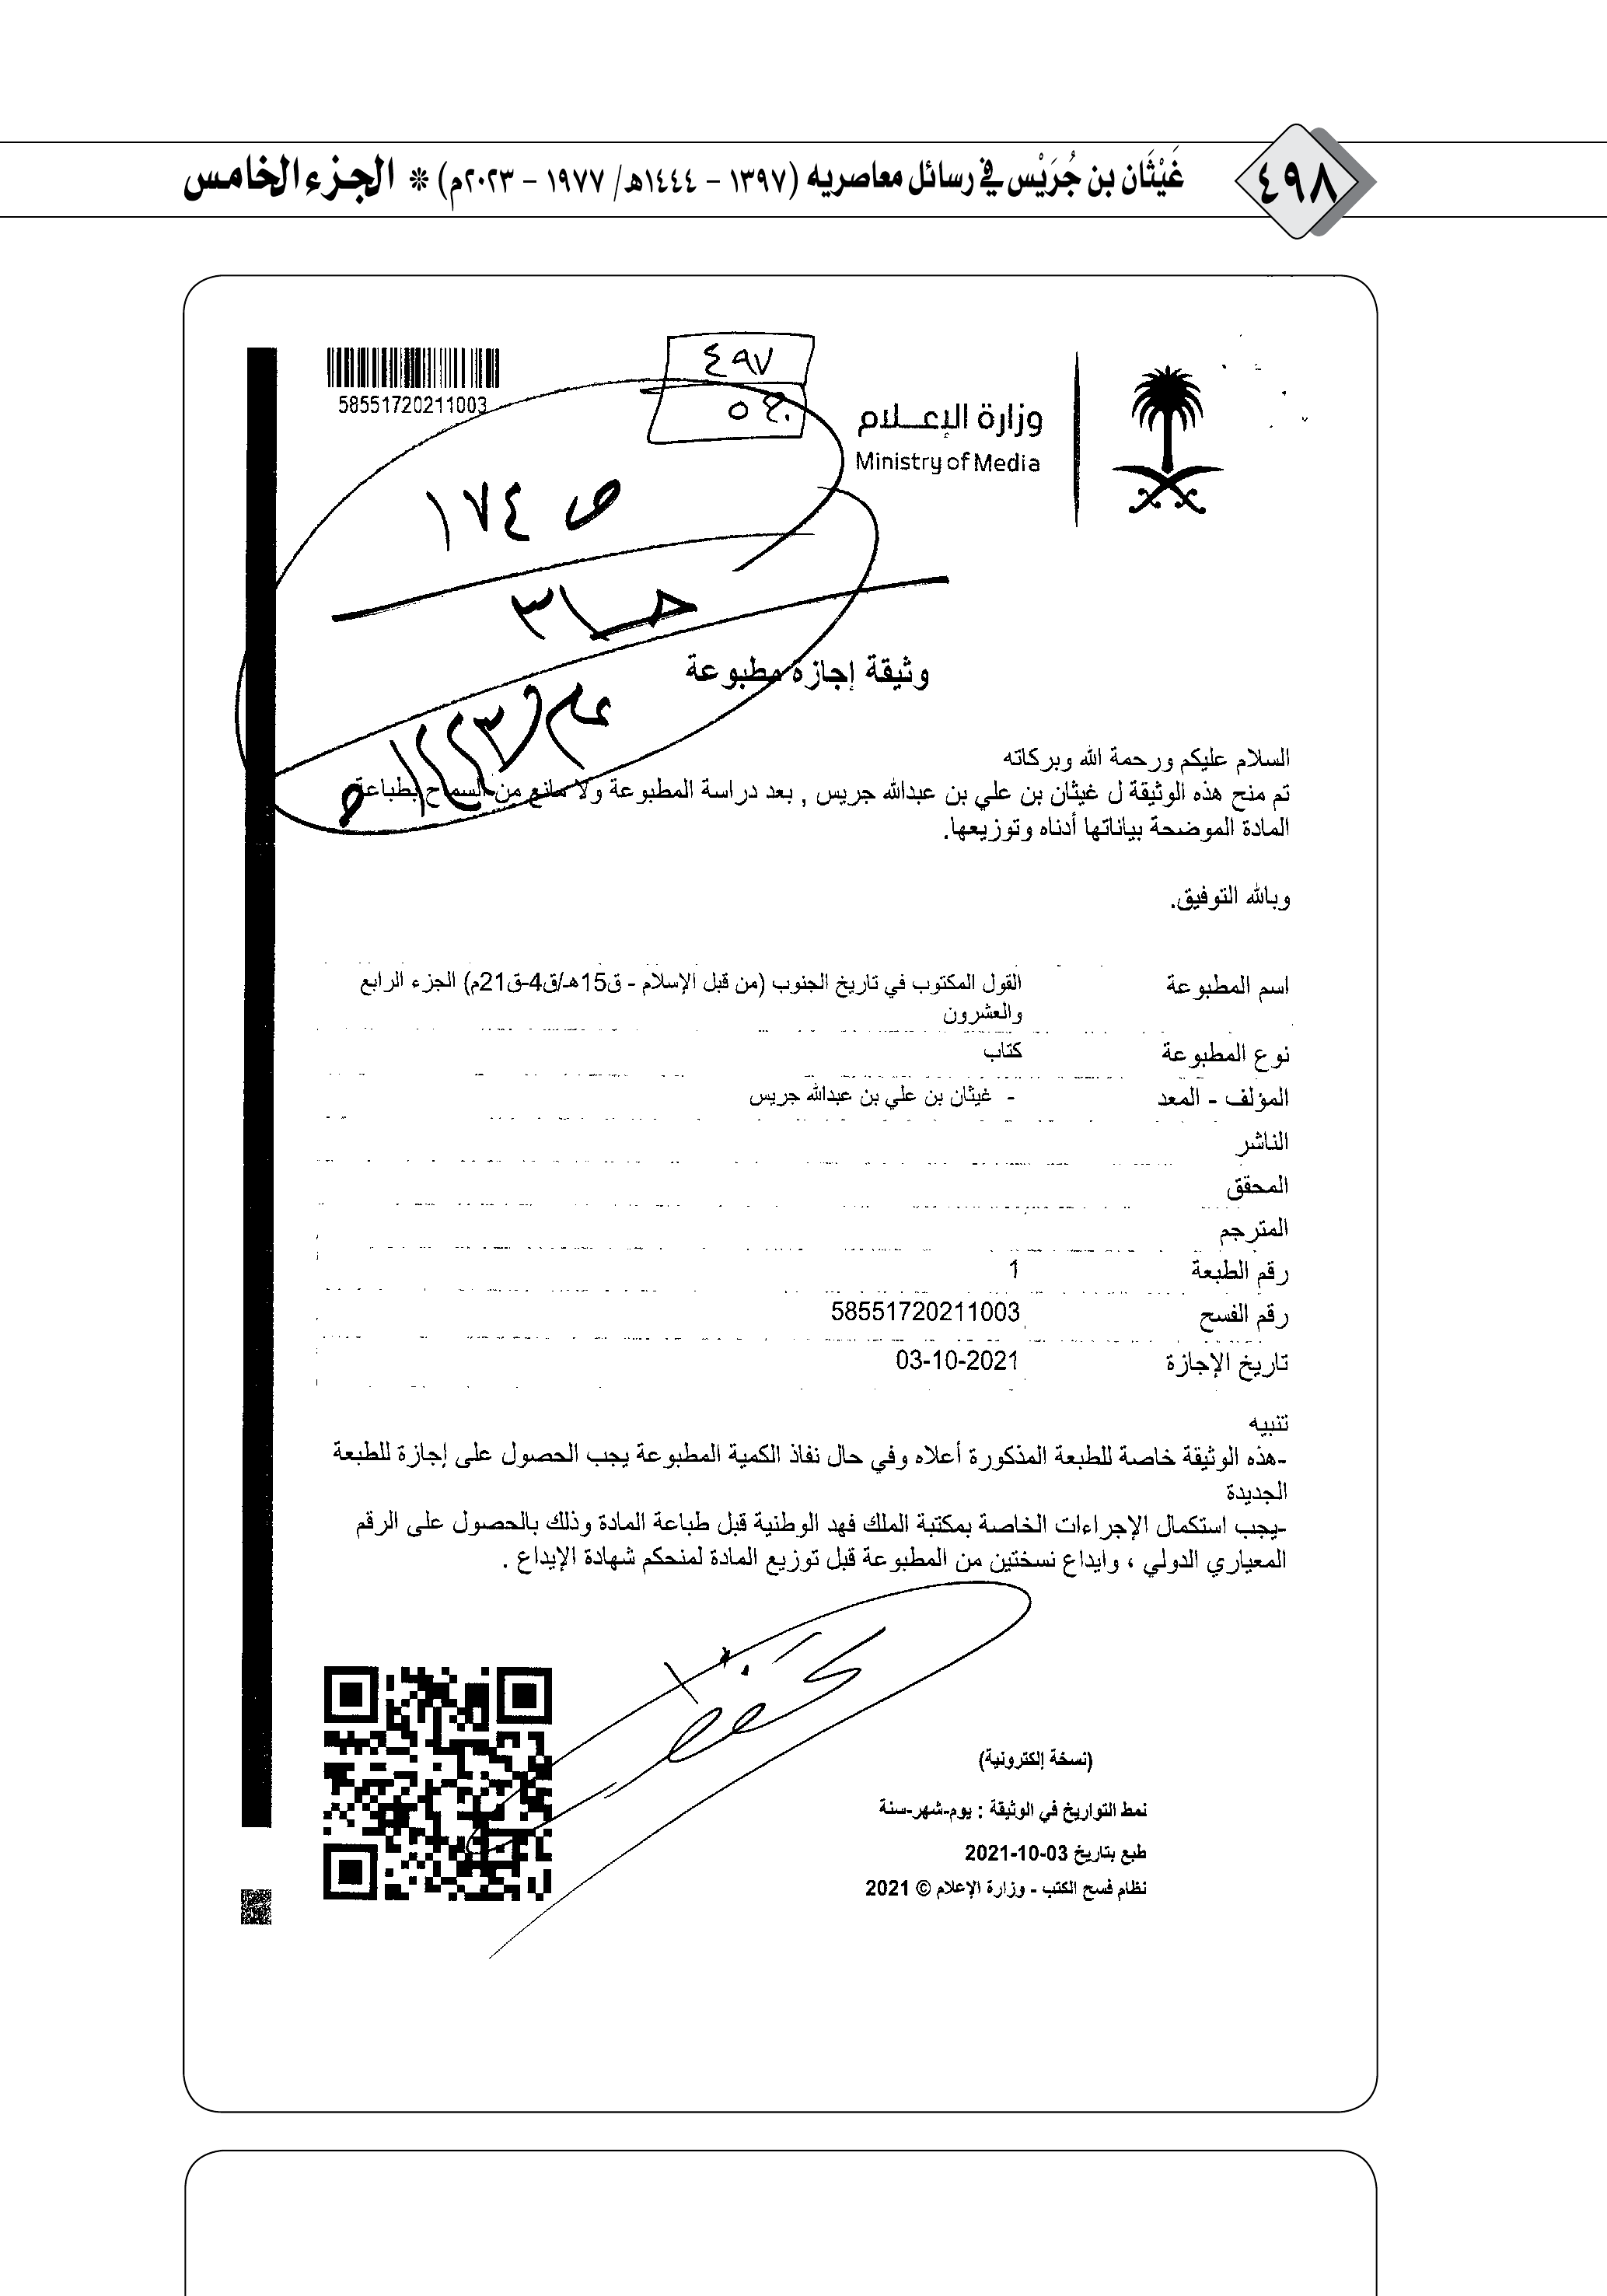 ٤٩٨
غَيْثَان بن جُرَيْس في رسائل معاصريه (١٣٩٧ – ١٤٤٤هـ/ ١٩٧٧ – ٢٠٢٣م) * الجزء الخامس
58551720211003
٤٩٧
وزارة الإعــلام
Ministry of Media
ص ١٧٤
وثيقة إجازة مطبوعة
السلام عليكم ورحمة الله وبركاته
تم منح هذه الوثيقة ل غيثان بن علي بن عبدالله جريس , بعد دراسة المطبوعة ولا مانع من السماح بطباعة
المادة الموضحة بياناتها أدناه وتوزيعها.
وبالله التوفيق.
اسم المطبوعة القول المكتوب في تاريخ الجنوب (من قبل الإسلام - ق15هـ/ق4-ق21م) الجزء الرابع
والعشرون
نوع المطبوعة كتاب
المؤلف - المعد - غيثان بن علي بن عبدالله جريس
الناشر
المحقق
المترجم
رقم الطبعة 1
رقم الفسح 58551720211003
تاريخ الإجازة 03-10-2021
تنبيه
-هذه الوثيقة خاصة للطبعة المذكورة أعلاه وفي حال نفاذ الكمية المطبوعة يجب الحصول على إجازة للطبعة
الجديدة
-يجب استكمال الإجراءات الخاصة بمكتبة الملك فهد الوطنية قبل طباعة المادة وذلك بالحصول على الرقم
المعياري الدولي ، وايداع نسختين من المطبوعة قبل توزيع المادة لمنحكم شهادة الإيداع .
(نسخة إلكترونية)
نمط التواريخ في الوثيقة : يوم-شهر-سنة
طبع بتاريخ 03-10-2021
نظام فسح الكتب - وزارة الإعلام © 2021